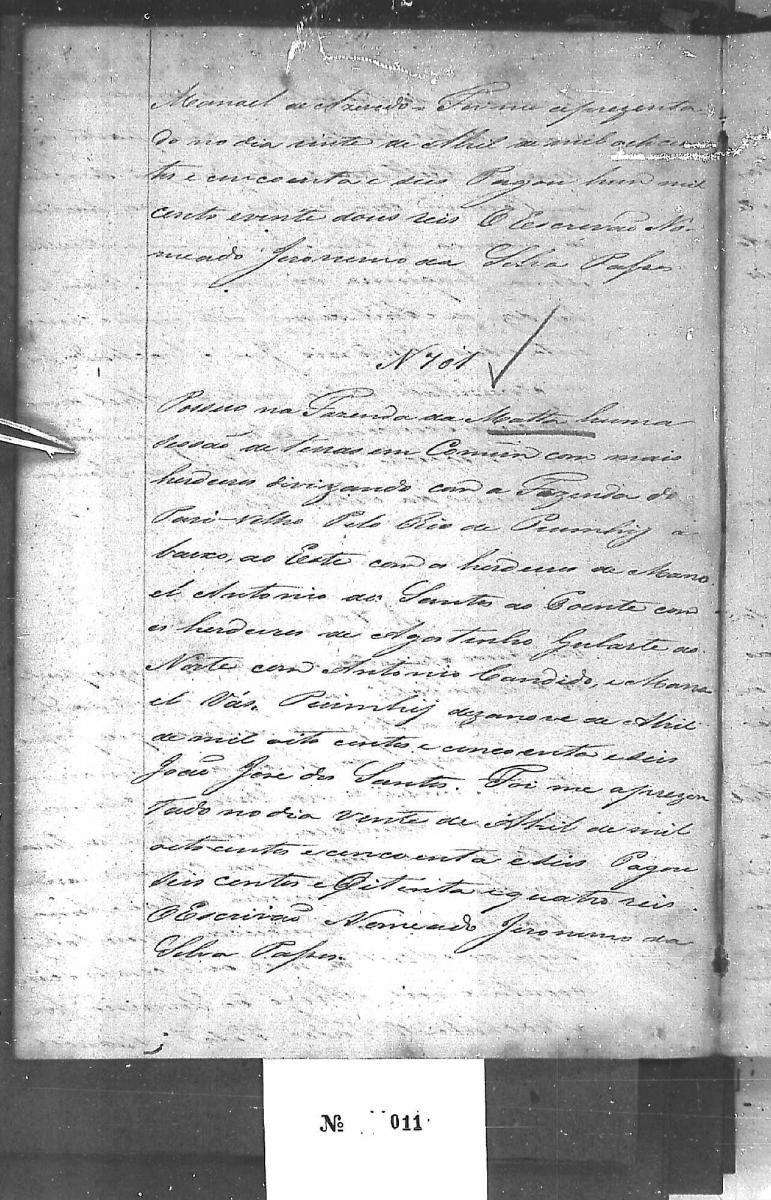 Manoel de Azevedo. Foi me aprezenta
do no dia vinte de Abril de mil oito cen
tos e cincoenta e seis Pagou hum mil
cento e vente dous reis O Escrivão No
meado Jeronimo da Silva Passos

N 701
Possuo na Fazenda da Matta huma
sessão de terras em Comum com mais
herdeiros divizando com a Fazenda do
Pari-velho Pelo Rio de Piumhij a
baixo, ao Este com os herdeiros de Mano
el Antonio dos Santos ao Poente com
os herdeiros de Agostinho Gularte ao
Norte com Antonio Candido, e Mano
el Vás. Piumhij dezanove de Abril
de mil oito centos e cincoenta e seis
João Jose dos Santos. Foi me aprezen
tado no dia vente de Abril de mil
oito centos e cencoenta e seis Pagou
seis centos e Oitenta e quatro reis
O Escrivão Nomeado Jeronimo da
Silva Passos.

№ 011